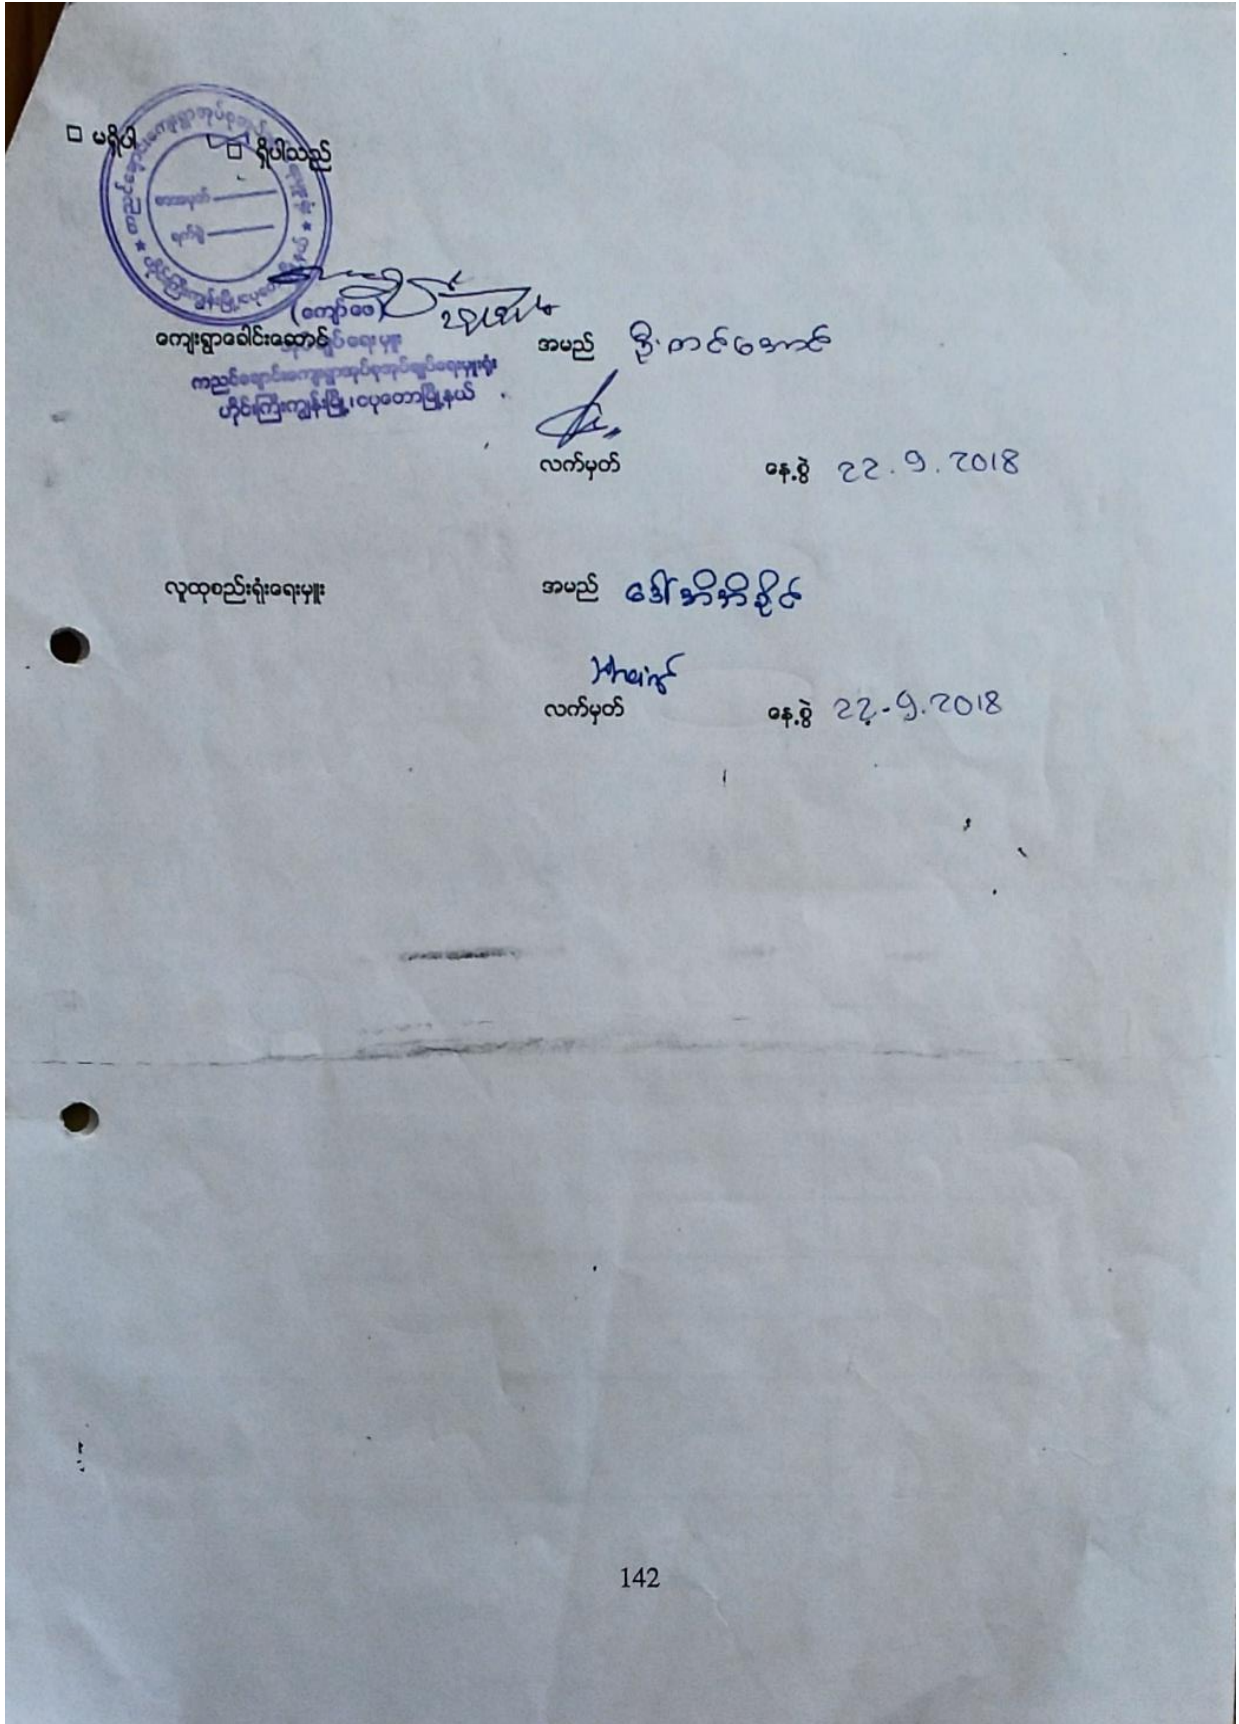 □ မရှိပါ □ ရှိပါသည်
စာအမှတ်
ရက်စွဲ
(ကျော်ဝေ)
ကျေးရွာခေါင်းဆောင် အမည် ဦးတင်အောင်
ကညင်ချောင်းကျေးရွာအုပ်စုအုပ်ချုပ်ရေးမှူးရုံး
ဟိုင်းကြီးကျွန်းမြို့၊ ငပုတောမြို့နယ်
လက်မှတ် နေ့စွဲ 22.9.2018
လူထုစည်းရုံးရေးမှူး အမည် ဒေါ်အိအိခိုင်
လက်မှတ် နေ့စွဲ 22.9.2018
142